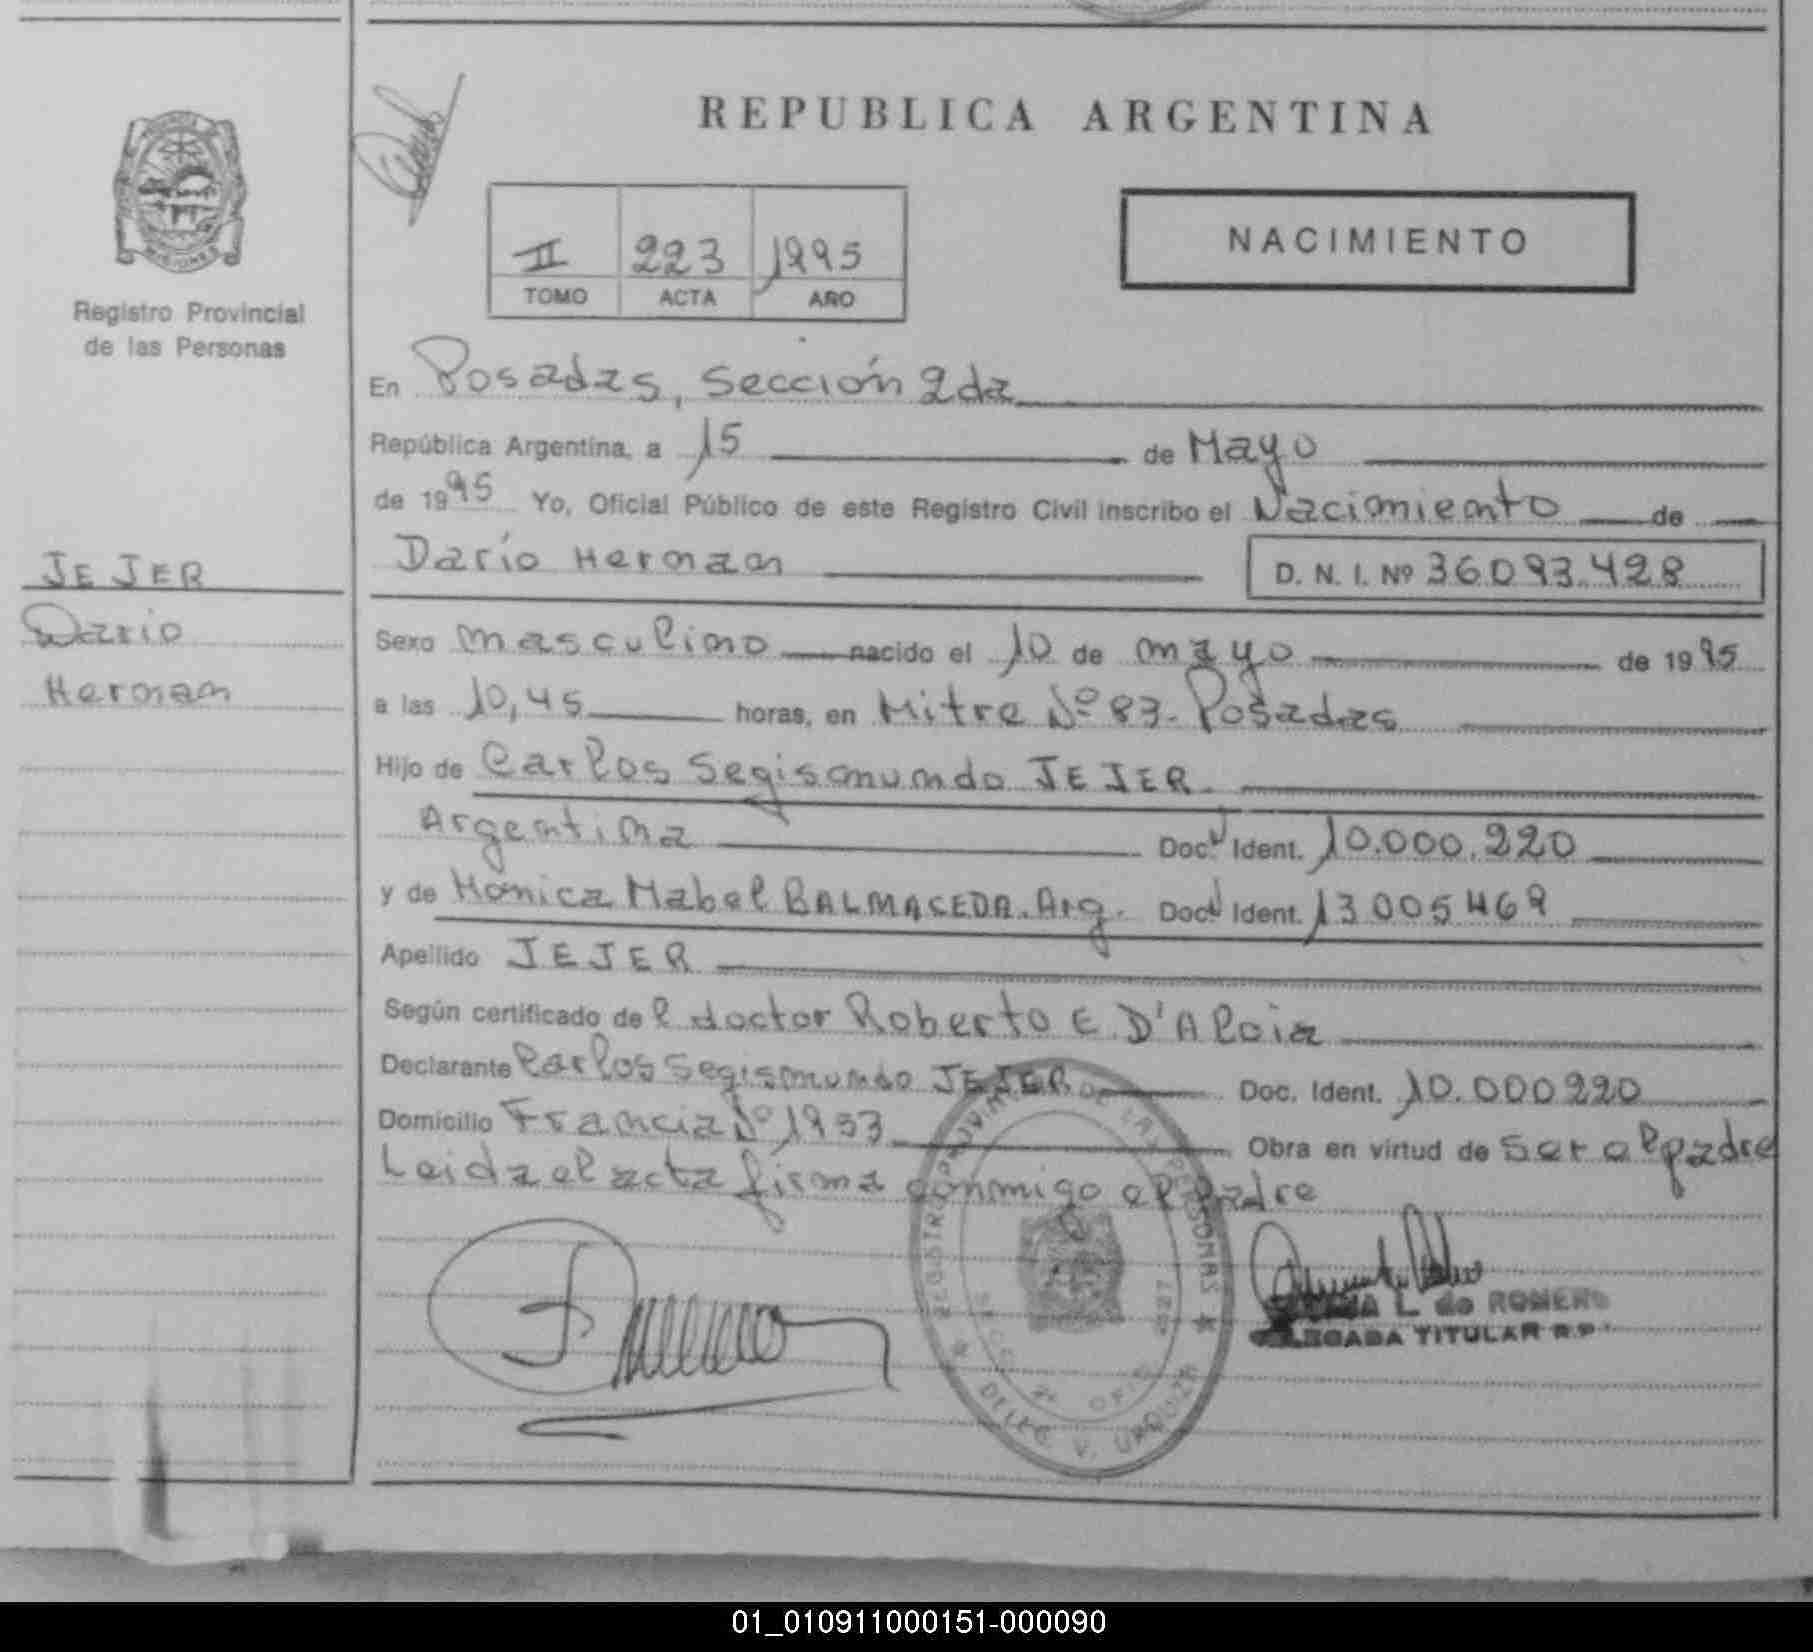 REPUBLICA ARGENTINA
II 223 1995
TOMO ACTA AÑO
NACIMIENTO
MISIONES
Registro Provincial
de las Personas
En Posadas, Sección 2da
República Argentina, a 15 de Mayo
de 1995 Yo, Oficial Público de este Registro Civil inscribo el Nacimiento de
Darío Hernan D. N. I. Nº 36.093.428
JEJER
Dario
Hernan
Sexo masculino nacido el 10 de mayo de 1995
a las 10,45 horas, en Mitre Nº 83. Posadas
Hijo de Carlos Segismundo JEJER.
Argentina Doc. Ident. 10.000.220
y de Monica Mabel BALMACEDA. Arg. Doc. Ident. 13005469
Apellido JEJER
Según certificado del doctor Roberto E. D'Aloia
Declarante Carlos Segismundo JEJER Doc. Ident. 10.000220
Domicilio Francia Nº 1953 Obra en virtud de ser el padre
Leida el acta firma conmigo el padre
REGISTRO PROVINCIAL DE LAS PERSONAS
SECC. 2ª OFIC.
DELEG. V. URQUIZA
L. de ROMERO
DELEGADA TITULAR R.P.
01_010911000151-000090